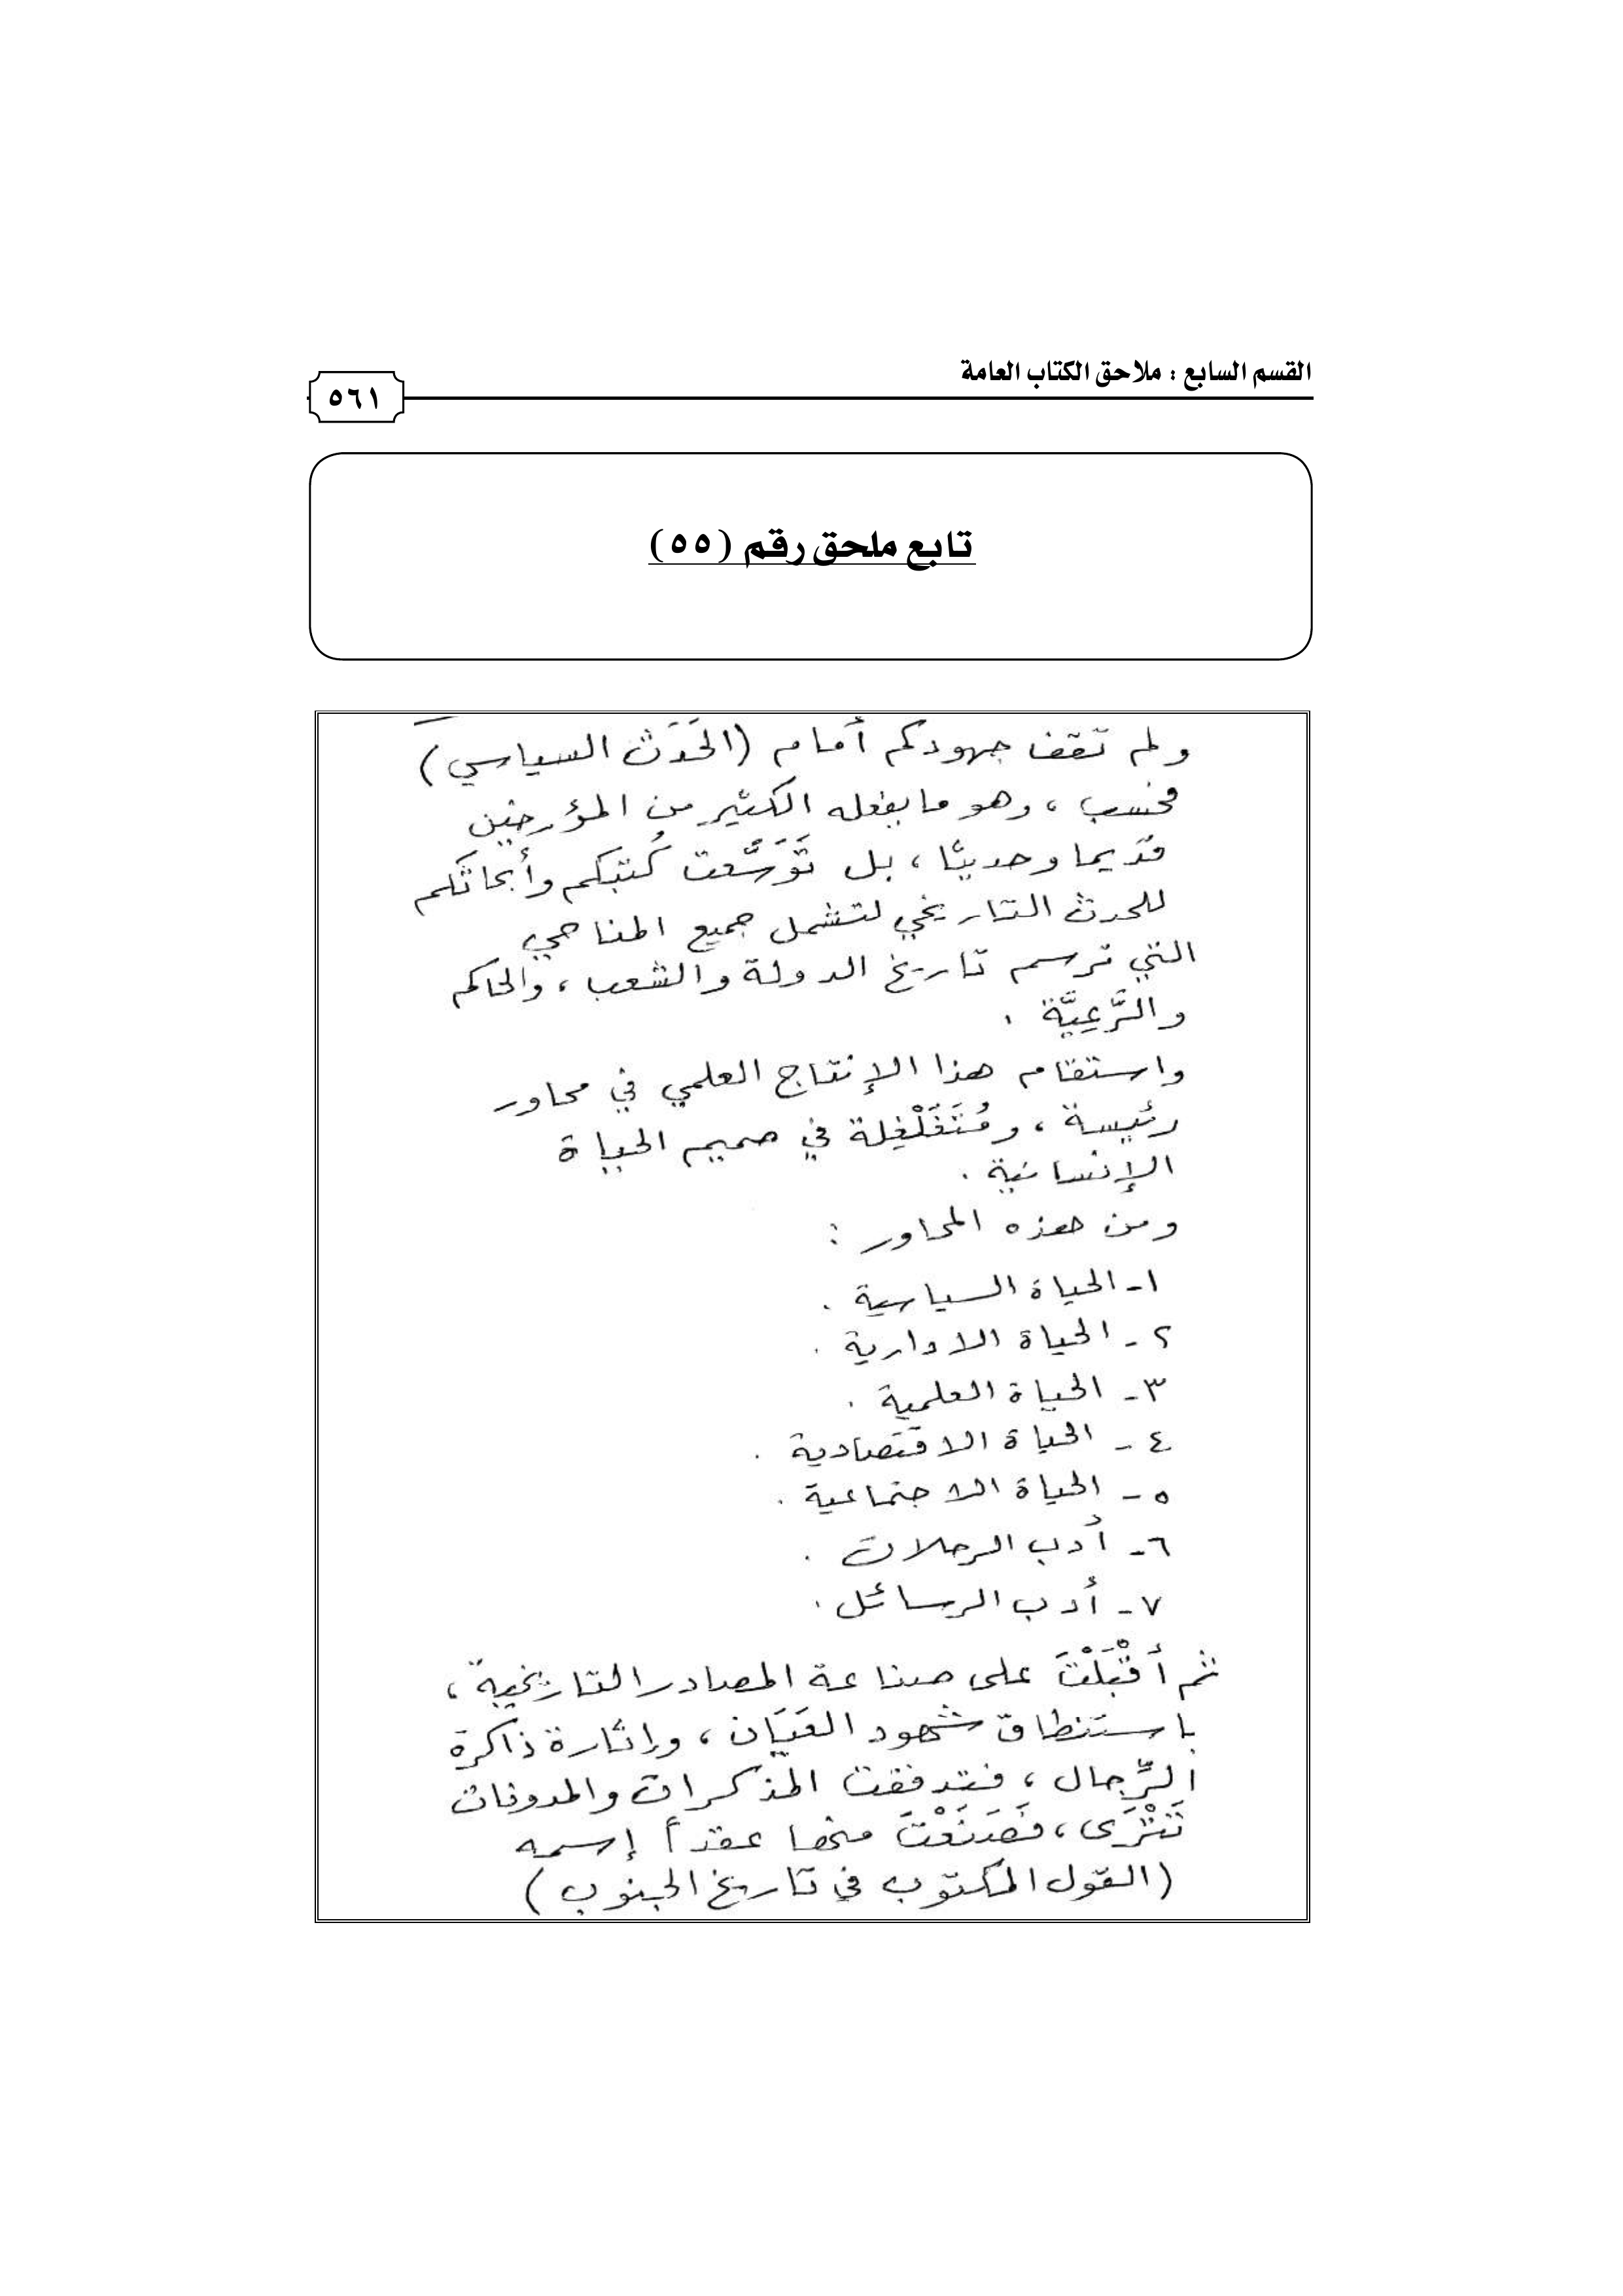 القسم السابع : ملاحق الكتاب العامة
٥٦١
تابع ملحق رقم (٥٥)
ولم تقف جهودكم أمام (الحَدَث السياسي)
فحسب ، وهو ما يفعله الكثير من المؤرخين
قديما وحديثًا ، بل تَوَسَّعت كُتبكم وأبحاثكم
للحدث التاريخي لتشمل جميع المناحي
التي ترسم تاريخ الدولة والشعب ، والحاكم
والرَّعِيَّة .
واستقام هذا الإنتاج العلمي في محاور
رئيسة ، ومُتَغَلْغِلة في صميم الحياة
الإنسانية .
ومن هذه المحاور :
١- الحياة السياسية .
٢- الحياة الادارية .
٣- الحياة العلمية .
٤- الحياة الاقتصادية .
٥- الحياة الاجتماعية .
٦- أدب الرحلات .
٧- أدب الرسائل .
ثم أقْبَلْتَ على صناعة المصادر التاريخية ،
باستنطاق شهود العَيَان ، وإثارة ذاكرة
الرِّجال ، فتدفقت المذكرات والمدونات
تَتْرَى ، فَصَنَعْتَ منها عقداً إسمه
(القول المكتوب في تاريخ الجنوب)